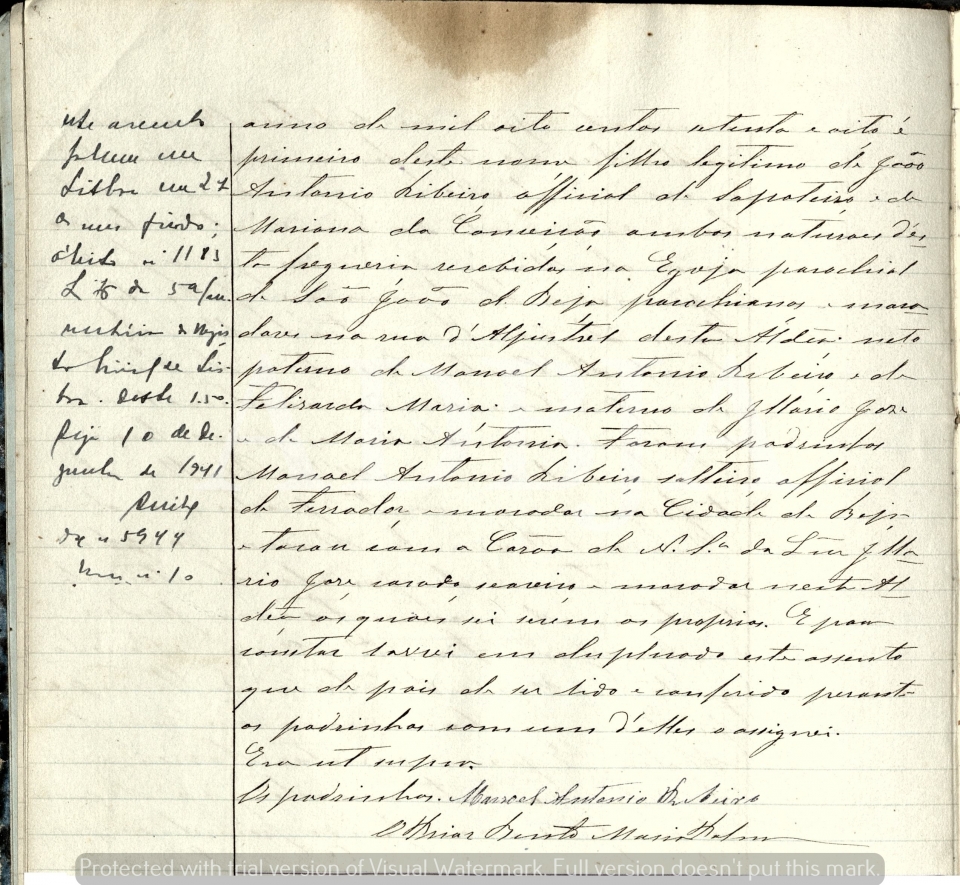 anno de mil oito centos otenta e oito é
primeiro deste nome filho legitimo de João
Antonio Ribeiro official de Sapateiro e de
Mariana da Conceição ambos naturaes dés
ta freguezia recebidos na Egreja parochial
de São João de Beja parochianos e mora
dores na rua d'Aljustrel desta Aldea: neto
paterno de Manoel Antonio Ribeiro e de
Felizarda Maria: e materno de Illario Jose
e de Maria Antonia. Foram padrinhos
Manoel Antonio Ribeiro solteiro official
de Ferrador e morador na Cidade de Beja
e tocou com a Corôa de N. S.ra da Luz Illa
rio Jose casado seareiro e morador nesta Al
dêa os quaes sei serem os proprios. E para
constar lavrei em duplicado este assento
que de pois de ser lido e conferido perante
os padrinhos com um d'elles o assignei.
Era ut supra.
Os padrinhos. Manoel Antonio Ribeiro
O Prior Bento Maria
este assento
faleceu em
Lisboa em 27
do mes findo;
óbito nº 1183
L 76 da 5ª Con.
servatória do Regis
to Civil de Lis-
boa. 1.50.
Beja 10 de De-
zembro de 1941
nº 5944
nº 10
Protected with trial version of Visual Watermark. Full version doesn't put this mark.